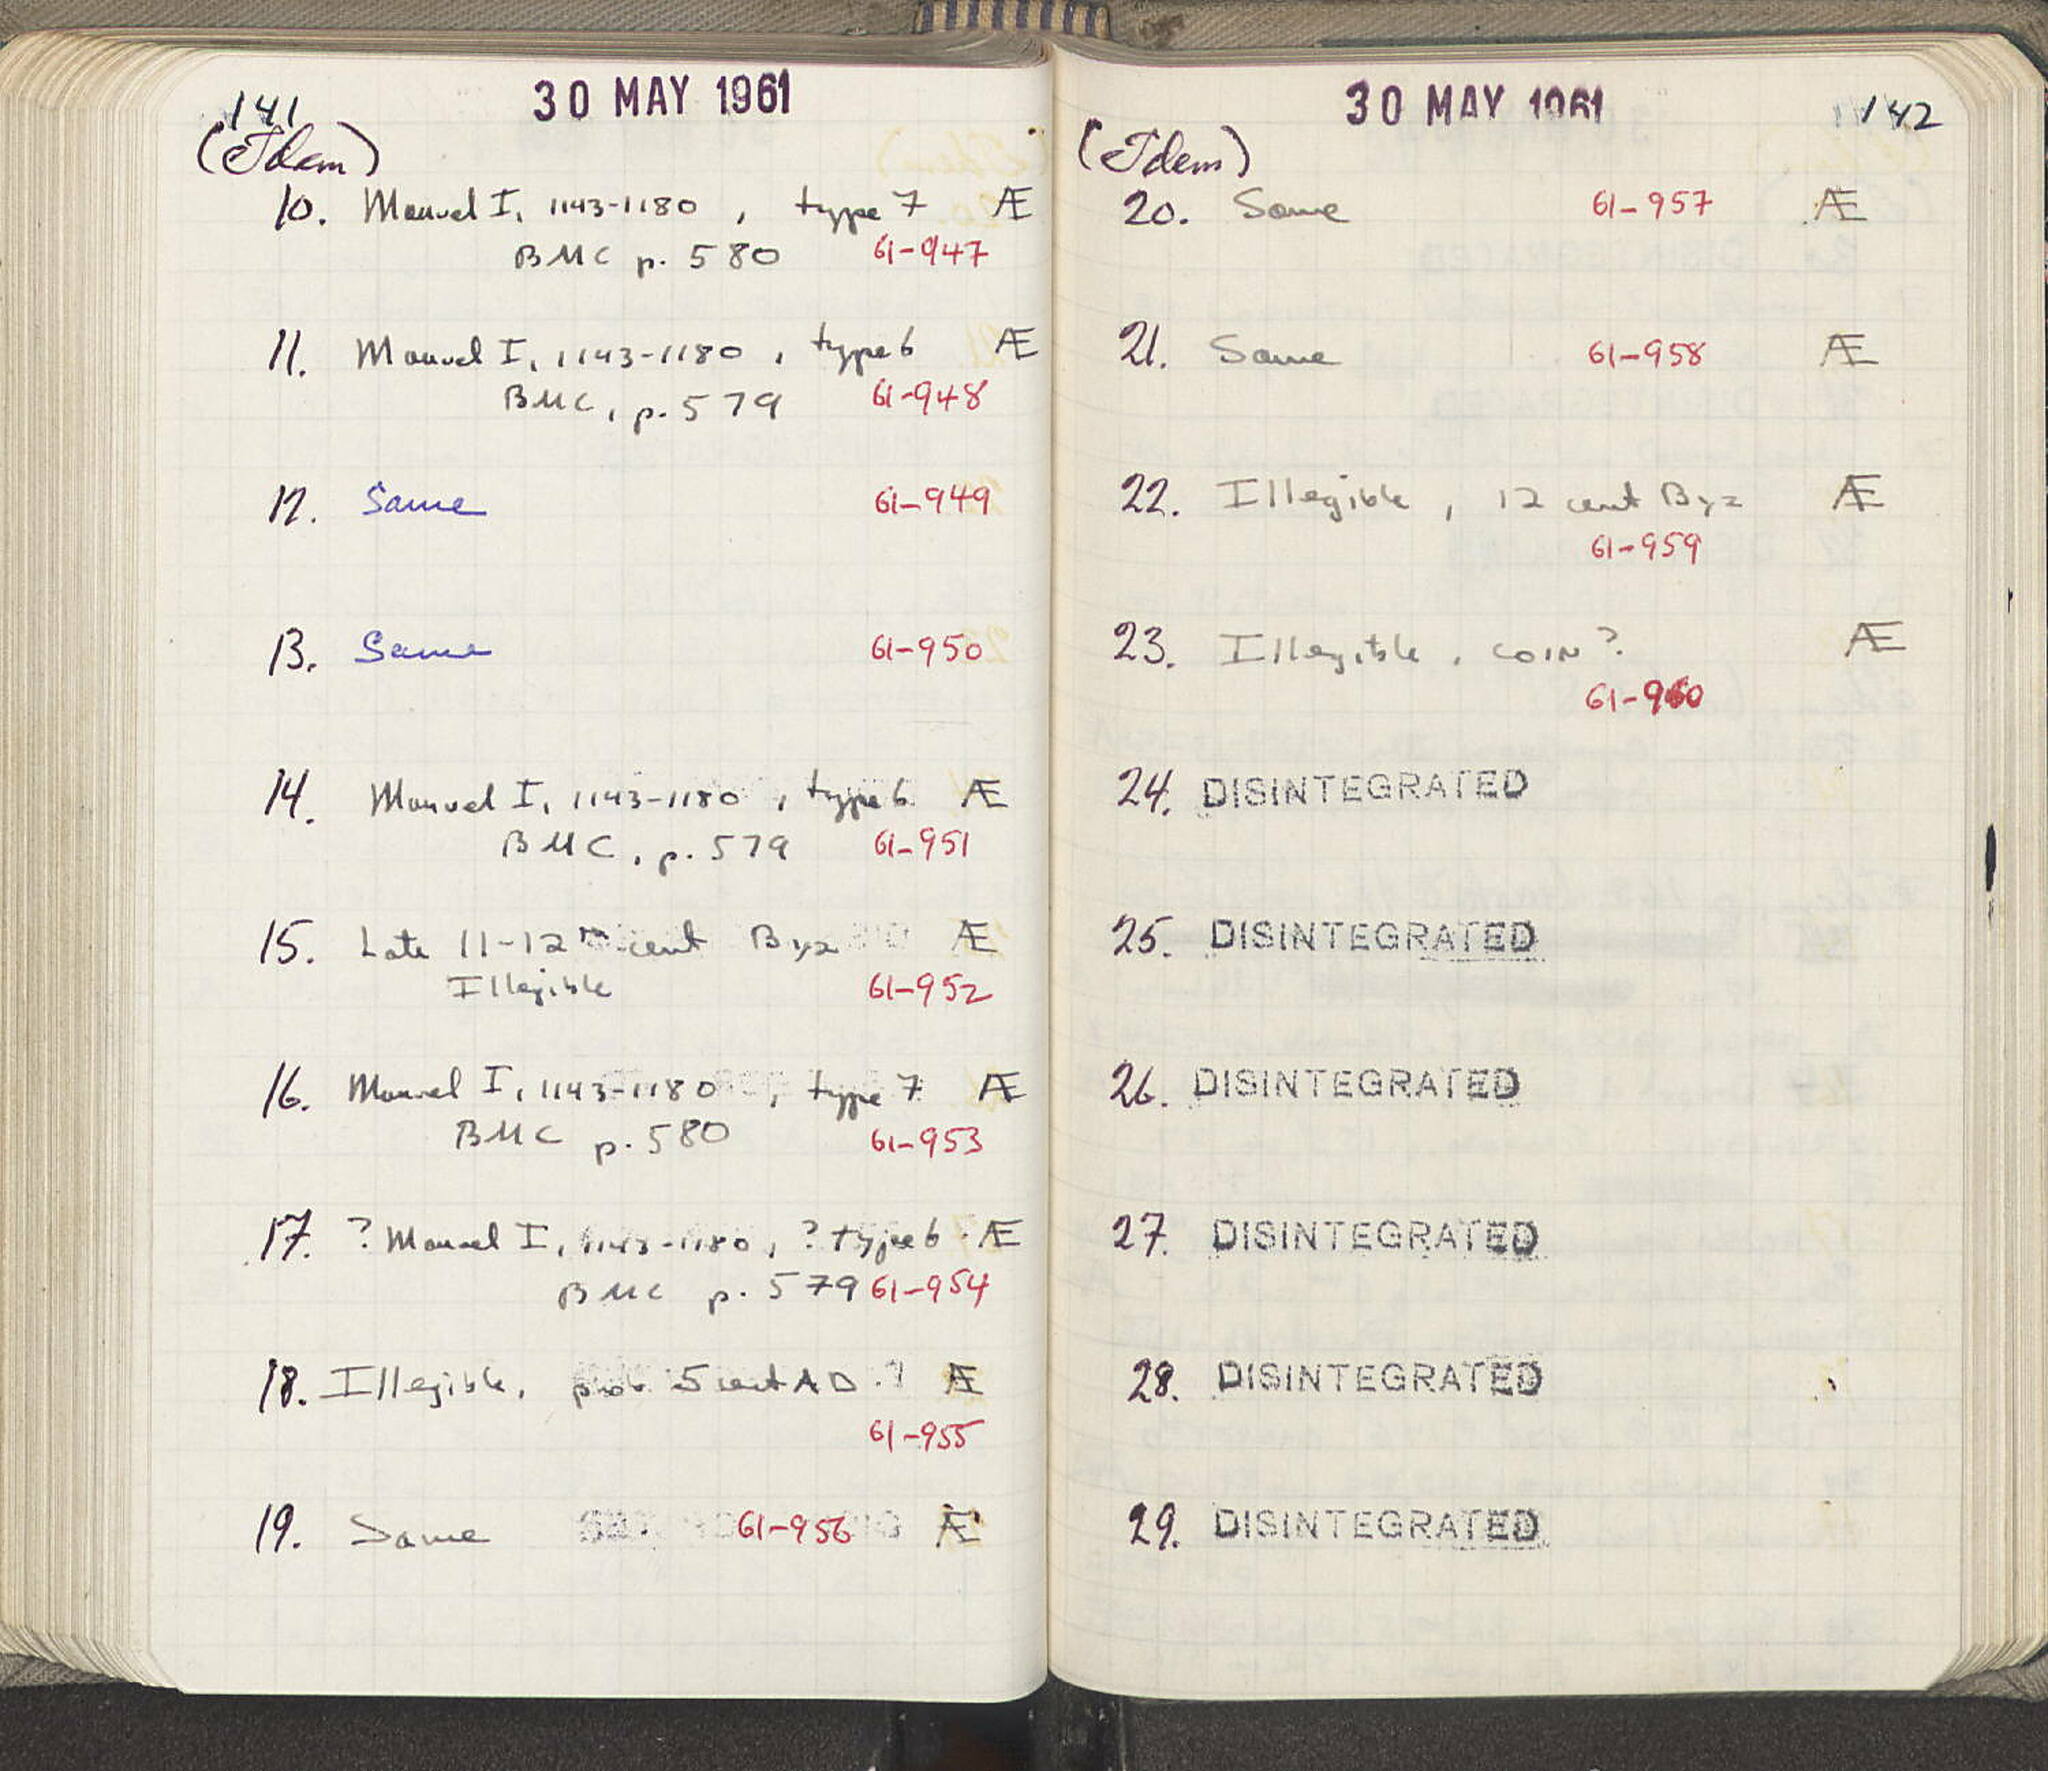 141
30 MAY 1961
(Idem)
10. Manuel I, 1143-1180, type 7 Æ
BMC p. 580 61-947
11. Manuel I, 1143-1180, type 6 Æ
BMC, p. 579 61-948
12. Same 61-949
13. Same 61-950
14. Manuel I, 1143-1180, type 6 Æ
BMC, p. 579 61-951
15. Late 11-12th cent Byz Æ
Illegible 61-952
16. Manuel I, 1143-1180, type 7 Æ
BMC p. 580 61-953
17. ? Manuel I, 1143-1180, ? type 6. Æ
BMC p. 579 61-954
18. Illegible, prob 5 cent AD.? Æ
61-955
19. Same 61-956 Æ
30 MAY 1961
142
(Idem)
20. Same 61-957 Æ
21. Same 61-958 Æ
22. Illegible, 12 cent Byz Æ
61-959
23. Illegible, coin? Æ
61-960
24. DISINTEGRATED
25. DISINTEGRATED
26. DISINTEGRATED
27. DISINTEGRATED
28. DISINTEGRATED
29. DISINTEGRATED